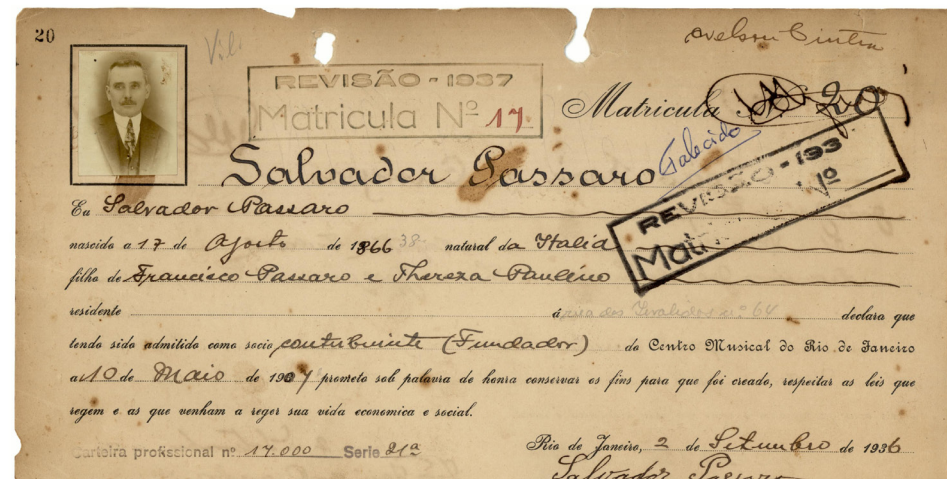 20
Nelson Cintra
REVISÃO - 1937
Matricula Nº 17
Matricula 20
Falecido
REVISÃO - 193
Matricula Nº
Salvador Passaro
Eu Salvador Passaro
nascido a 17 de Agosto de 1866 38 natural da Italia
filho de Francisco Passaro e Thereza Paulino
residente á rua dos Invalidos nº 64 declara que
tendo sido admitido como socio contribuinte (Fundador) do Centro Musical do Rio de Janeiro
a 10 de Maio de 1907 prometo sob palavra de honra conservar os fins para que foi creado, respeitar as leis que
regem e as que venham a reger sua vida economica e social.
Carteira profissional nº 17.000 Serie 21ª
Rio de Janeiro, 2 de Setembro de 1936
Salvador Passaro